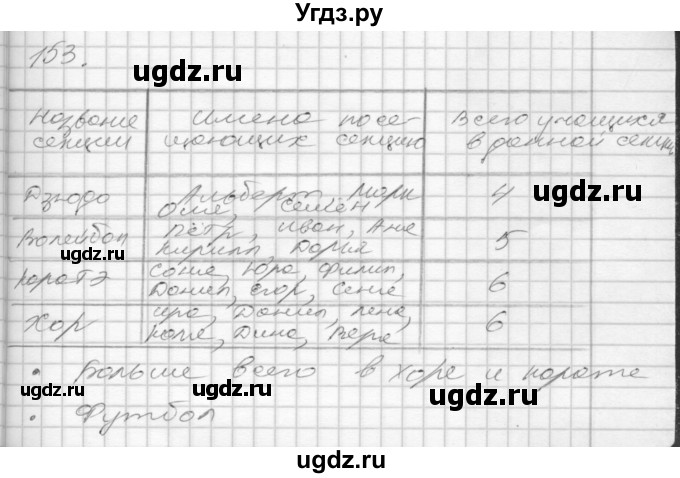 Угдз.ру
153.
ugdz.ru
ugdz.ru
Название секции
Имена посещающих секцию
Всего учащихся в данной секции
Дзюдо
Альберт, Марк
Оля, Семён
4
ugdz.ru
Волейбол
Пётр, Иван, Аня
Кирилл, Дарья
5
ugdz.ru
ugdz.ru
Каратэ
Соня, Юра, Филип,
Данил, Егор, Сеня
6
Хор
Ира, Даниил, Лена,
Коля, Дина, Вера
6
• Больше всего в хоре и карате
ugdz.ru
ugdz.ru
ugdz.ru
• Футбол
ugdz.ru